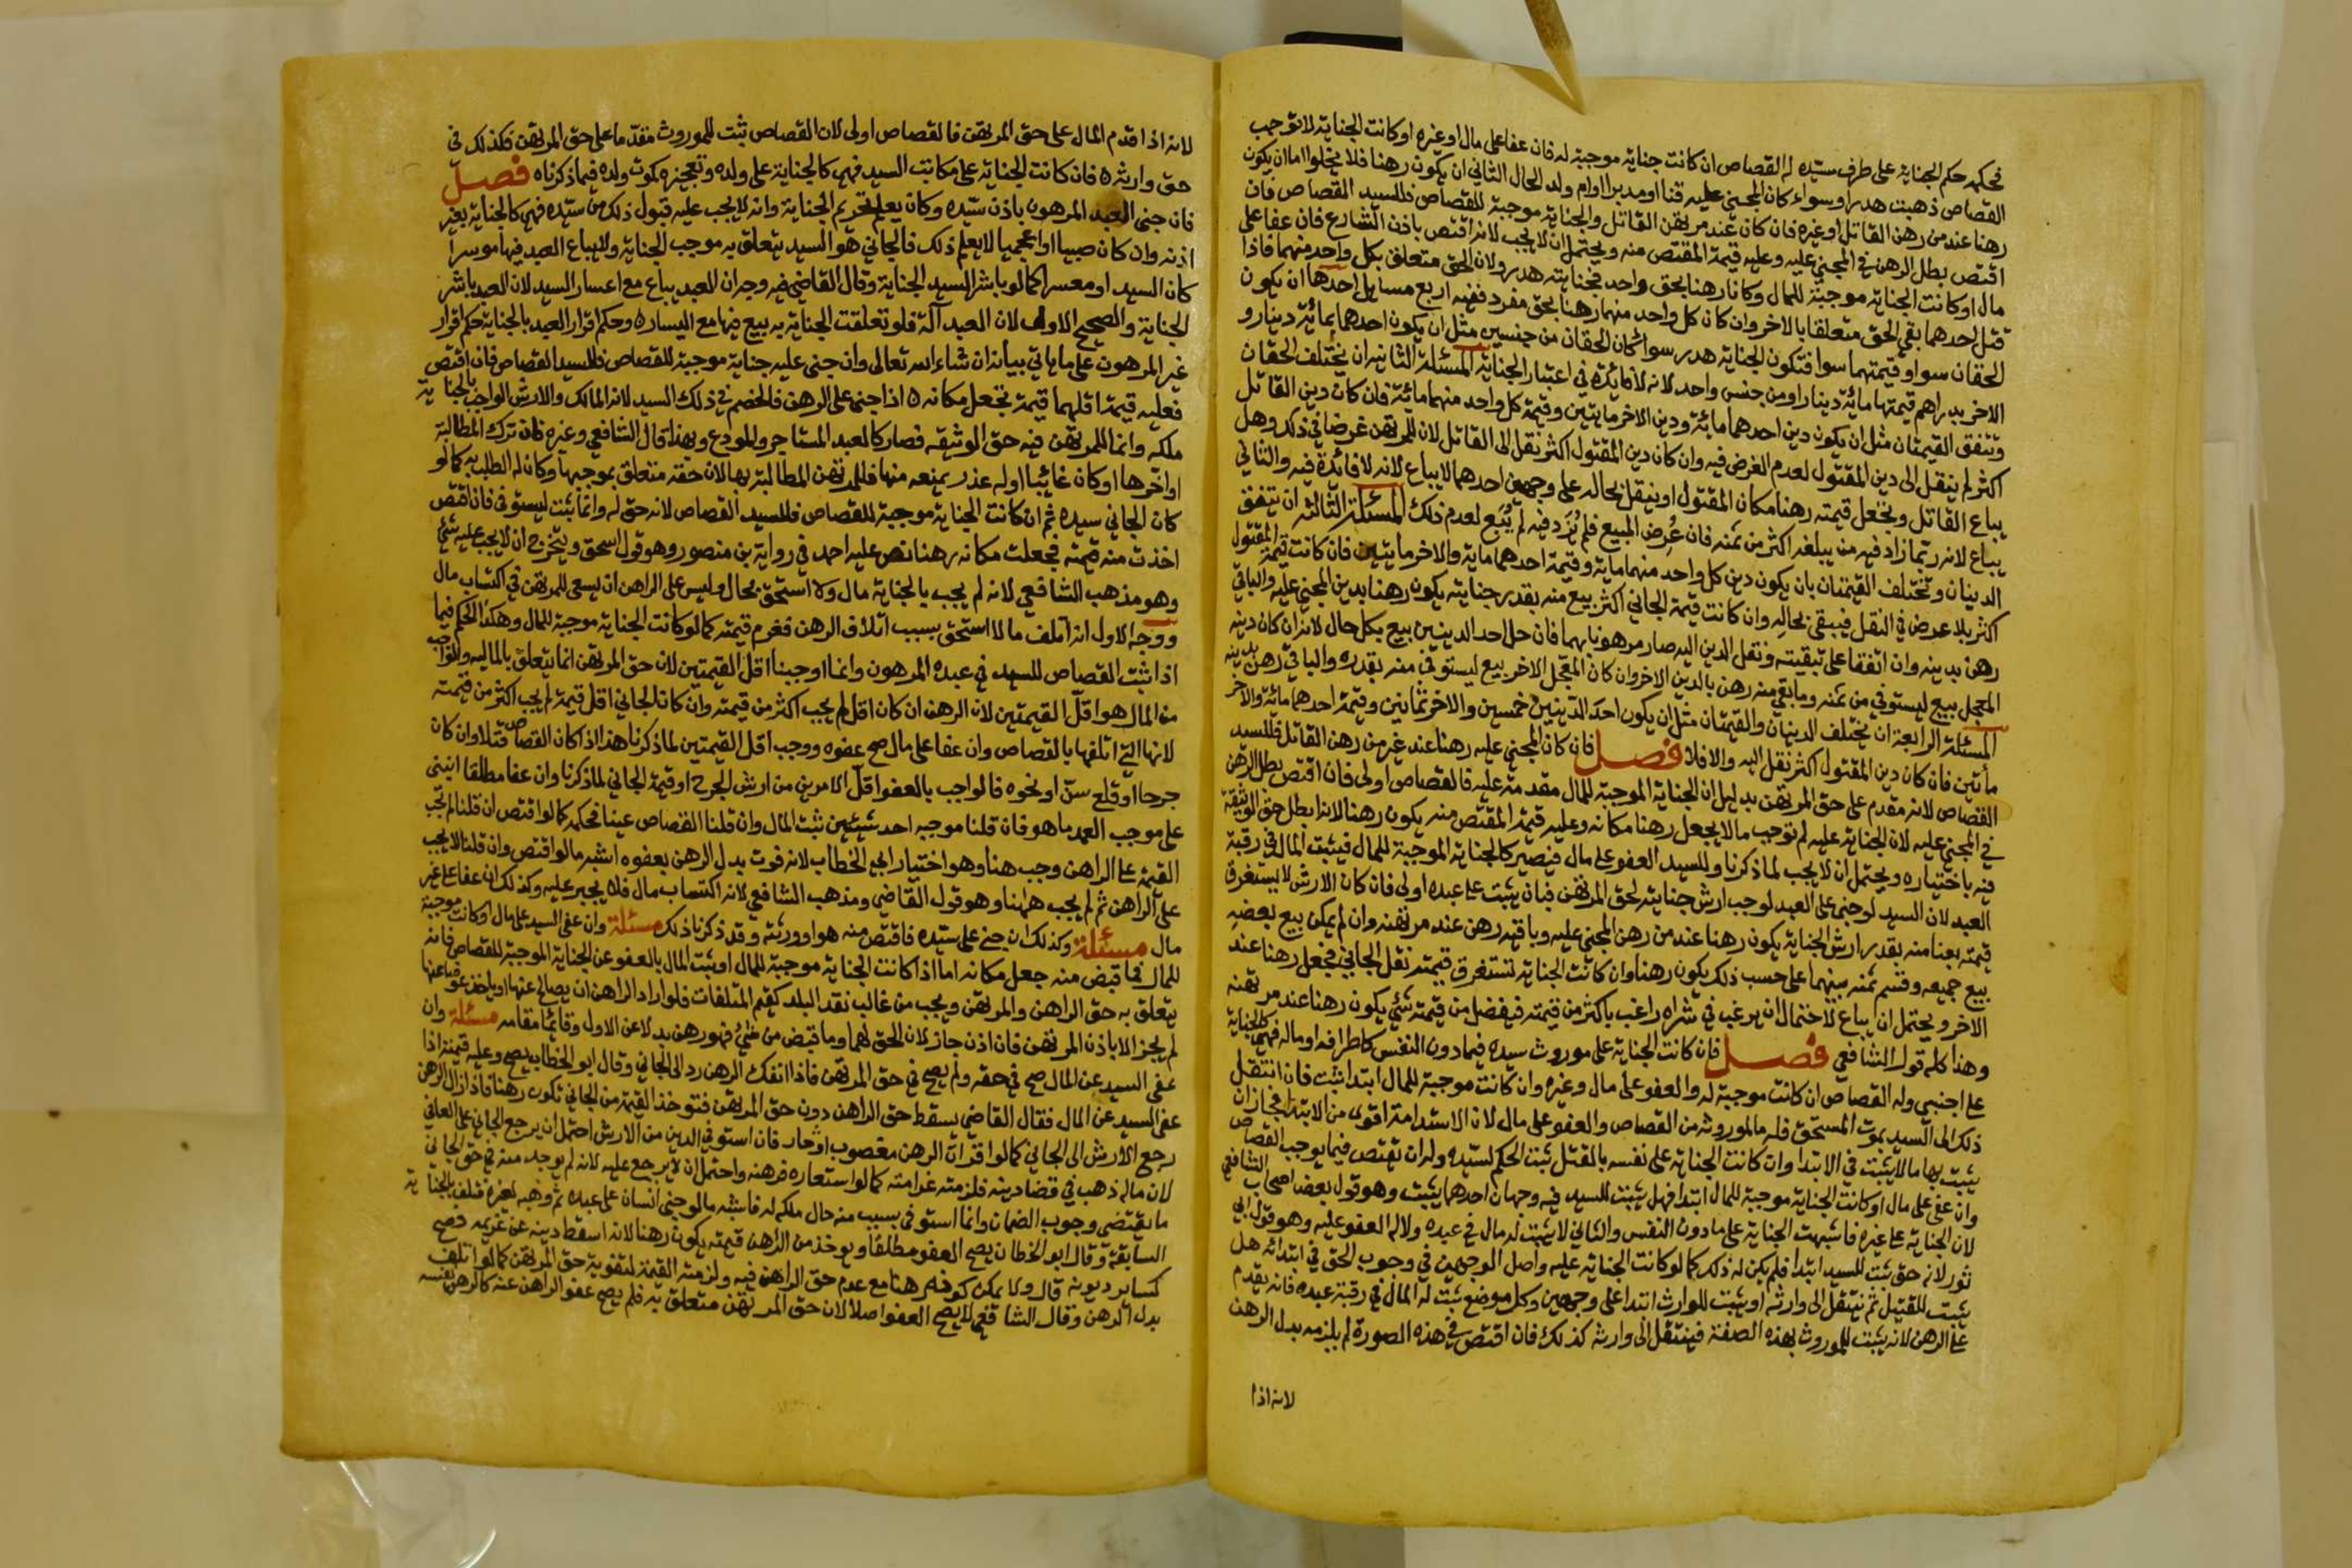 فحكمه حكم الجناية على طرف سيده له القصاص ان كانت جناية موجبة له فان عفا على مال او غيره او كانت الجناية لا توجب
القصاص ذهبت هدرا وسواء كان المجني عليه قنا او مدبرا او ام ولد الحال الثاني ان يكون رهنا فلا يخلوا اما ان يكون
رهنا عند من رهن القاتل او غيره فان كان عند مرتهن القاتل والجناية موجبة للقصاص فللسيد القصاص فان
اقتص بطل الرهن في المجني عليه وعليه قيمة المقتص منه ويحتمل ان لا يجب لانه اقتص باذن الشارع فان عفا على
مال او كانت الجناية موجبة للمال وكانا رهنا بحق واحد فجنايته هدر ولان الحق متعلق بكل واحد منهما فاذا
قتل احدهما بقي الحق متعلقا بالاخر وان كان كل واحد منهما رهنا بحق مفرد ففيه اربع مسايل احدها ان يكون
الحقان سوا وقيمتهما سوا فتكون الجناية هدر سوا كان الحقان من جنسين مثل ان يكون احدهما بمائة دينار و
الاخر بدراهم قيمتها مائة دينار او من جنس واحد لانه لا فائدة في اعتبار الجناية المسئلة الثانية ان يختلف الحقان
وتتفق القيمتان مثل ان يكون دين احدهما مائة ودين الاخر مايتين وقيمة كل واحد منهما مائة فان كان دين القاتل
اكثر لم ينقل الى دين المقتول لعدم الغرض فيه وان كان دين المقتول اكثر نقل الى القاتل لان للمرتهن غرضا في ذلك وهل
يباع القاتل وتجعل قيمته رهنا مكان المقتول او ينقل بحاله على وجهين احدهما لا يباع لانه لا فائدة فيه والثاني
يباع لانه ربما زاد فيه من يبلغه اكثر من ثمنه فان عرض المبيع فلم يزد فيه لم يبع لعدم ذلك المسئلة الثالثة ان يتفق
الدينان وتختلف القيمتان بان يكون دين كل واحد منهما ماية وقيمة احدهما ماية والاخر مايتين فان كانت قيمة المقتول
اكثر فلا غرض في النقل فيبقى بحاله وان كانت قيمة الجاني اكثر بيع منه بقدر جنايته يكون رهنا بدين المجني عليه والباقي
رهن بدينه وان اتفقا على تبقيته ونقل الدين اليه صار مرهونا بهما فان حل احد الدينين بيع بكل حال لانه ان كان دينه
المعجل بيع ليستوفي من ثمنه وما بقي منه رهن بالدين الاخر وان كان المعجل الاخر بيع ليستوفي منه بقدره والباقي رهن بدينه
المسئلة الرابعة ان يختلف الدينان والقيمتان مثل ان يكون احد الدينين خمسين والاخر ثمانين وقيمة احدهما مائة والاخر
مأتين فان كان دين المقتول اكثر نقل اليه والا فلا فصل فان كان المجني عليه رهنا عند غير من رهن القاتل فللسيد
القصاص لانه مقدم على حق المرتهن بدليل ان الجناية الموجبة للمال مقدمة عليه فالقصاص اولى فان اقتص بطل الرهن
في المجني عليه لان الجناية عليه لم توجب مالا يجعل رهنا مكانه وعليه قيمة المقتص منه يكون رهنا لانه ابطل حق الوثيقة
فيه باختياره ويحتمل ان لا يجب لما ذكرنا وللسيد العفو على مال فيصير كالجناية الموجبة للمال فيثبت المال في رقبة
العبد لان السيد لو جنى على العبد لوجب ارش جنايته لحق المرتهن فبان يثبت على عبده اولى فان كان الارش لا يستغرق
قيمته بعنا منه بقدر ارش الجناية يكون رهنا عند من رهن المجني عليه وباقيه رهن عند مرتهنه وان لم يمكن بيع بعضه
بيع جميعه وقسم ثمنه بينهما على حسب ذلك يكون رهنا وان كانت الجناية تستغرق قيمته نقل الجاني فجعل رهنا عند
الاخر ويحتمل ان يباع لاحتمال ان يرغب في شراه راغب باكثر من قيمته فيفضل من قيمته شئ يكون رهنا عند مرتهنه
وهذا كله قول الشافعي فصل فان كانت الجناية على موروث سيده فيما دون النفس كاطرافه او ماله فهي كالجناية
على اجنبي وله القصاص ان كانت موجبة له والعفو على مال وغيره وان كانت موجبة للمال ابتدا ثبت فان انتقل
ذلك الى السيد بموت المستحق فله ما لموروثه من القصاص والعفو على مال لان الاستدامة اقوى من الابتدا فجاز ان
يثبت بها ما لا يثبت في الابتدا وان كانت الجناية على نفسه بالمقتل ثبت الحكم لسيده وله ان يقتص فيما يوجب القصاص
وان عفى على مال او كانت الجناية موجبة للمال ابتدا فهل يثبت للسيد فيه وجهان احدهما يثبت وهو قول بعض اصحاب الشافعي
لان الجناية على غيره فاشبهت الجناية على ما دون النفس والثاني لا يثبت له مال في عبده ولا له العفو عليه وهو قول ابي
ثور لانه حق ثبت للسيد ابتدا فلم يكن له ذلك كما لو كانت الجناية عليه واصل الوجهين في وجوب الحق في ابتدائه هل
يثبت للقتيل ثم ينتقل الى وارثه او يثبت للوارث ابتدا على وجهين وكل موضع ثبت له المال في رقبة عبده فانه يقدم
على الرهن لانه يثبت للموروث بهذه الصفة فينتقل الى وارثه كذلك فان اقتص في هذه الصورة لم يلزمه بدل الرهن
لانه اذا
لانه اذا قدم المال على حق المرتهن فالقصاص اولى لان القصاص ثبت للموروث مقدما على حق المرتهن فكذلك في
حق وارثه فان كانت الجناية على مكاتب السيد فهي كالجناية على ولده وتعجيزه كموت ولده فيما ذكرناه فصل
فان جنى العبد المرهون باذن سيده وكان يعلم تحريم الجناية وانه لا يجب عليه قبول ذلك من سيده فهي كالجناية بغير
اذنه وان كان صبيا او اعجميا لا يعلم ذلك فالجاني هو السيد يتعلق به موجب الجناية ولا يباع العبد فيها موسرا
كان السيد او معسرا كما لو باشر السيد الجناية وقال القاضي فيه وجه ان العبد يباع مع اعسار السيد لان العبد باشر
الجناية والصحيح الاول لان العبد آلة فلو تعلقت الجناية به بيع فيها مع اليساره وحكم اقرار العبد بالجناية حكم اقرار
غير المرهون على ما ياتي بيانه ان شاء الله تعالى وان جنى عليه جناية موجبة للقصاص فللسيد القصاص فان اقتص
فعليه قيمة اقلهما قيمة تجعل مكانه ه اذا جنى على الرهن فالخصم في ذلك السيد لانه المالك والارش الواجب بالجناية
ملكه وانما للمرتهن فيه حق الوثيقه فصار كالعبد المستاجر والمودع وبهذا قال الشافعي وغيره فان ترك المطالبة
او اخرها او كان غائبا او له عذر يمنعه منها فللمرتهن المطالبة بها لان حقه متعلق بموجبها وكان له الطلب به كما لو
كان الجاني سيده ثم ان كانت الجناية موجبة للقصاص فللسيد القصاص لانه حق له وانما يثبت ليستوفى فان اقتص
اخذت منه قيمته فجعلت مكانه رهنا نص عليه احمد في رواية بن منصور وهو قول اسحق ويتخرج ان لا يجب عليه شئ
وهو مذهب الشافعي لانه لم يجب بالجناية مال ولا استحق بحال وليس على الراهن ان يسعى للمرتهن في اكتساب مال
ووجه الاول انه اتلف مالا استحق بسبب اتلاف الرهن فغرم قيمته كما لو كانت الجناية موجبة للمال وهكذا الحكم فيما
اذا ثبت القصاص للسيد في عبده المرهون وانما اوجبنا اقل القيمتين لان حق المرتهن انما يتعلق بالماليه والواجب
من المال هو اقل القيمتين لان الرهن ان كان اقل لم يجب اكثر من قيمته وان كان الجاني اقل قيمة لم يجب اكثر من قيمته
لانها التي اتلفها بالقصاص وان عفا على مال صح عفوه ووجب اقل القيمتين لما ذكرنا هذا اذا كان القصاص قتلا وان كان
جرحا او قلع سن او نحوه فالواجب بالعفو اقل الامرين من ارش الجرح او قيمة الجاني لما ذكرنا وان عفا مطلقا انبنى
على موجب العمد ما هو فان قلنا موجبه احد شيئين ثبت المال وان قلنا القصاص عينا فحكمه كما لو اقتص ان قلنا ثم تجب
القيمة على الراهن وجب هنا وهو اختيار ابي الخطاب لانه فوت بدل الرهن بعفوه اشبه ما لو اقتص وان قلنا لا يجب
على الراهن ثم لم يجب ههنا وهو قول القاضي ومذهب الشافعي لانه اكتساب مال فلا يجبر عليه وكذلك ان عفا على غير
مال مسئلة وكذلك ان جنى على سيده فاقتص منه هو او ورثته وقد ذكرنا ذلك مسئلة وان عفى السيد على مال او كانت موجبة
للمال فما قبض منه جعل مكانه اما اذا كانت الجناية موجبة للمال او ثبت المال بالعفو عن الجناية الموجبة للقصاص فانه
يتعلق به حق الراهن والمرتهن ويجب من غالب نقد البلد كقيم المتلفات فلو اراد الراهن ان يصالح عنها او ياخذ عوضا عنها
لم يجز الا باذن المرتهن فان اذن جاز لان الحق لهما وما قبض من شئ فهو رهن بدلا عن الاول وقائما مقامه مسئلة وان
عفى السيد عن المال صح في حقه ولم يصح في حق المرتهن فاذا انفك الرهن رد الى الجاني وقال ابو الخطاب يصح وعليه قيمته اذا
عفى السيد عن المال فقال القاضي يسقط حق الراهن دون حق المرتهن فتوخذ القيمة من الجاني تكون رهنا فاذا زال الرهن
رجع الارش الى الجاني كما لو اقر ان الرهن مغصوب او جان فان استوفي الدين من الارش احتمل ان يرجع الجاني على العافي
لان ماله ذهب في قضا دينه فلزمته غرامته كما لو استعاره فرهنه واحتمل ان لا يرجع عليه لانه لم يوجد منه في حق الجاني
ما يقتضي وجوب الضمان وانما استوفى بسبب منه حال ملكه له فاشبه ما لو جنى انسان على عبده ثم وهبه لغيره فتلف بالجناية
السابقة وقال ابو الخطاب يصح العفو مطلقا ويوخذ من الراهن قيمته يكون رهنا لانه اسقط دينه عن غريمه فصح
كساير ديونه قال ولا يمكن كونه رهنا مع عدم حق الراهن فيه ولزمته القيمة لتفويته حق المرتهن كما لو اتلف
بدل الرهن وقال الشافعي لا يصح العفو اصلا لان حق المرتهن متعلق به فلم يصح عفو الراهن عنه كالرهن نفسه